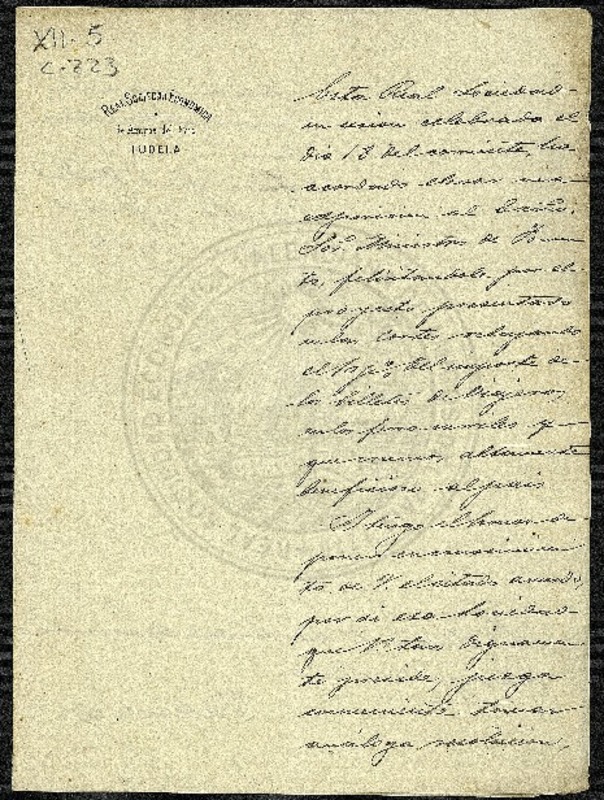 XII-5
C-223
REAL SOCIEDAD ECONÓMICA
TUDELA
Esta Real Sociedad
en sesion celebrada el
dia 18 del corriente, ha
acordado elevar una
esposicion al Excmo.
Sor. Ministro de Fomen
to, felicitandole por el
proyecto presentado
en las Cortes rebajando
el 10 p% del importe de
los billetes de viajeros
en los ferro-carriles y
que creemos altamente
beneficioso al pais
Y tengo el honor de
poner en conocimien
to de V. el citado acuerdo,
por si esa Sociedad
que V. tan dignamen
te preside, juzga
conveniente tomar
análoga resolucion,